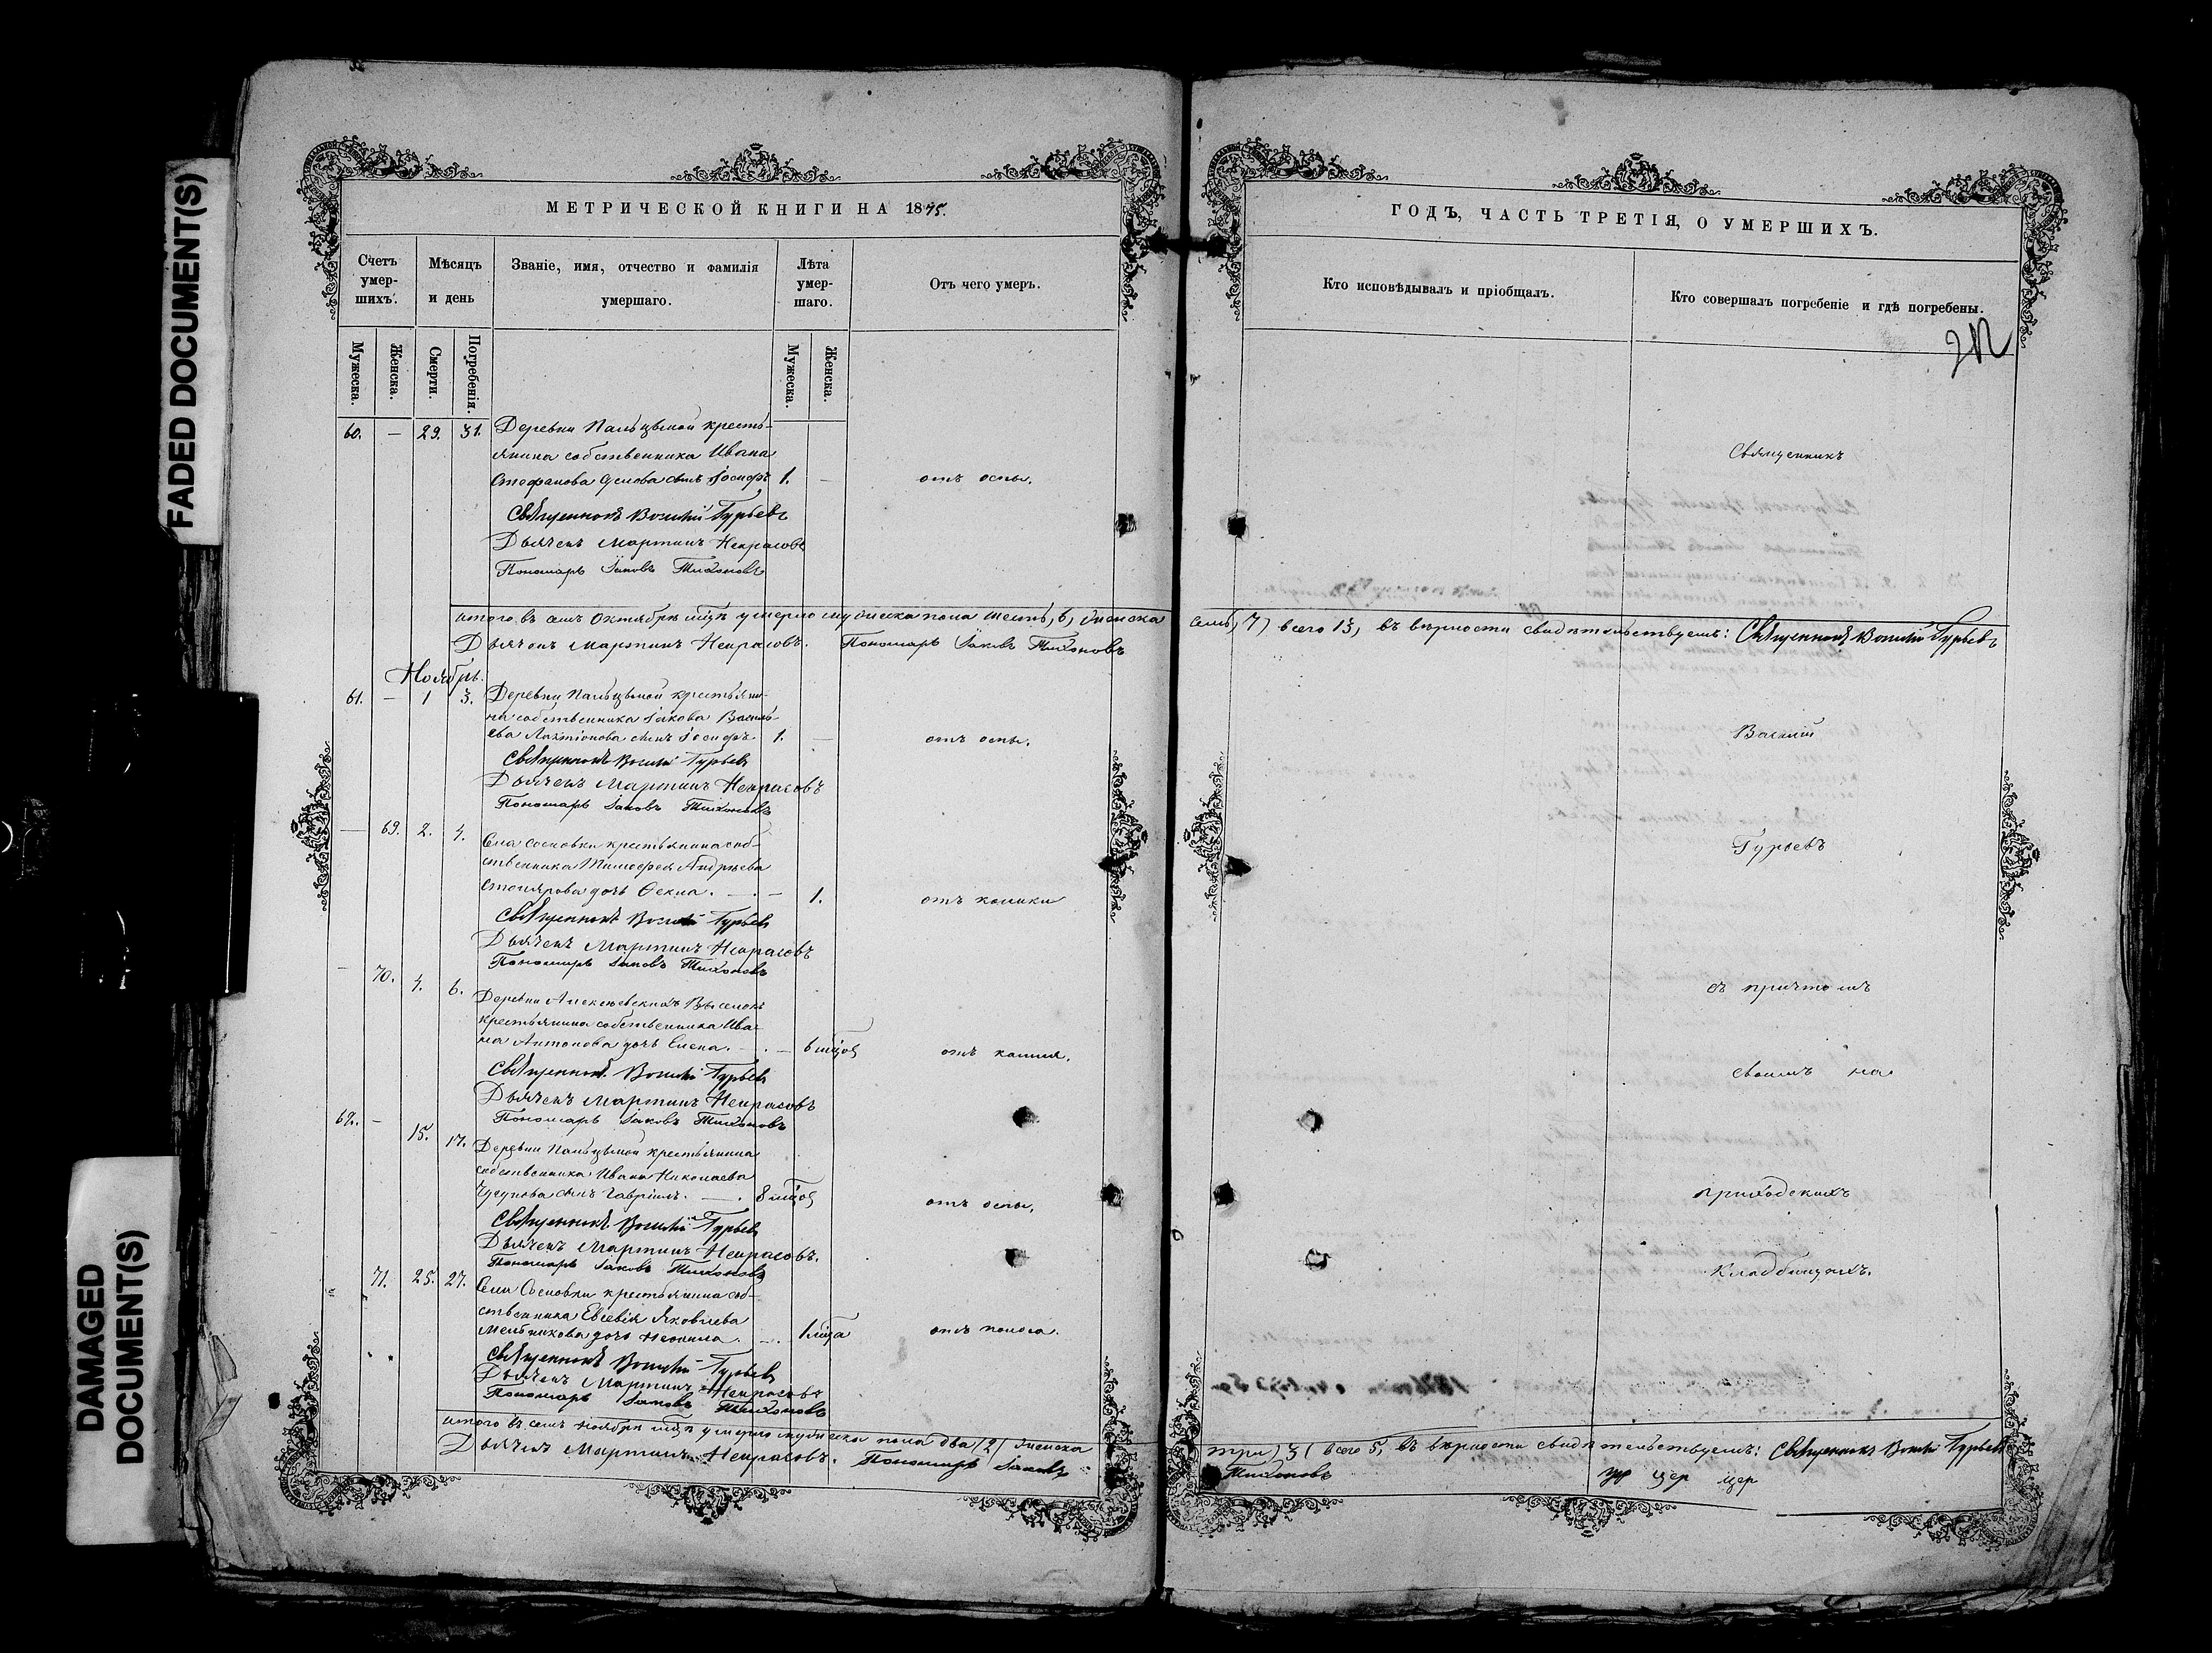 FADED DOCUMENT(S)
DAMAGED
DOCUMENT(S)
МЕТРИЧЕСКОЙ КНИГИ НА 1875.
Счетъ
умер-
шихъ.
Мѣсяцъ
и день
Званіе, имя, отчество и фамилія
умершаго.
Лѣта
умер-
шаго.
Отъ чего умеръ.
Мужеска.
Женска.
Смерти.
Погребенія.
Мужеска.
Женска.
60. — 29. 31. Деревни Пальцыной кресть-
янина собственника Ивана
Стефанова сынъ Іосифъ 1. — отъ оспы.
Священникъ Василій Гурьевъ
Дьячекъ Мартинъ Некрасовъ
Пономарь Іаковъ Тихоновъ
итого въ семъ Октябрѣ мцѣ умерло мужеска пола шесть, 6, женска
Дьячекъ Мартинъ Некрасовъ. Пономарь Іаковъ Тихоновъ
Ноябрь.
61. — 1 3. Деревни Пальцыной крестьяни-
на собственника Іакова Василь-
ева Лахтіонова сынъ Іосифъ. 1. — отъ оспы.
Священникъ Василій Гурьевъ
Дьячекъ Мартинъ Некрасовъ
Пономарь Іаковъ Тихоновъ
— 69. 2. 4. Села Сосновки крестьянина соб-
ственника Тимофея Андреева
Столярова дочь Фекла. — 1. отъ колики
Священникъ Василій Гурьевъ
Дьячекъ Мартинъ Некрасовъ
Пономарь Іаковъ Тихоновъ
— 70. 4. 6. Деревни Алексѣевскихъ Выселокъ
крестьянина собственника Ива-
на Антонова дочь Елена. — 6 мцов отъ кашля.
Священникъ Василій Гурьевъ
Дьячекъ Мартинъ Некрасовъ
Пономарь Іаковъ Тихоновъ
62. — 15. 17. Деревни Пальцыной крестьянина
собственника Ивана Николаева
сынъ Гавріилъ. — 8 мцов отъ оспы.
Священникъ Василій Гурьевъ
Дьячекъ Мартинъ Некрасовъ.
Пономарь Іаковъ Тихоновъ
71. 25. 27. Села Сосновки крестьянина соб-
ственника Евсевія Яковлева
Мельникова дочь Неонила. — 1 мца отъ поноса.
Священникъ Василій Гурьевъ
Дьячекъ Мартинъ Некрасовъ
Пономарь Іаковъ Тихоновъ
итого въ семъ ноябрѣ мцѣ умерло мужеска пола два /2/ женска
Дьячекъ Мартинъ Некрасовъ. Пономарь Іаковъ
ГОДЪ, ЧАСТЬ ТРЕТІЯ, О УМЕРШИХЪ.
Кто исповѣдывалъ и пріобщалъ.
Кто совершалъ погребеніе и гдѣ погребены.
Священникъ
семь, 7, всего 13, въ вѣрности свидѣтельствуемъ: Священникъ Василій Гурьевъ
Василій
Гурьевъ
съ причтомъ
своимъ на
приходскихъ
кладбищахъ.
три) 3( всего 5, въ вѣрности свидѣтельствуемъ: Священникъ Василій Гурьевъ
Тихоновъ